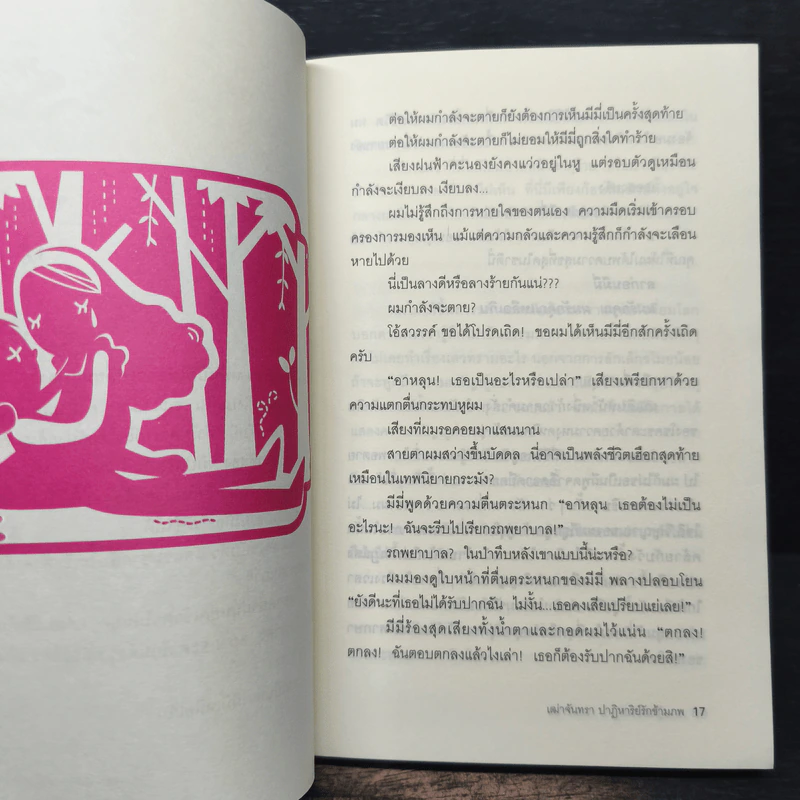 ต่อให้ผมกำลังจะตายก็ยังต้องการเห็นมีมี่เป็นครั้งสุดท้าย
ต่อให้ผมกำลังจะตายก็ไม่ยอมให้มีมี่ถูกสิ่งใดทำร้าย
เสียงฝนฟ้าคะนองยังคงแว่วอยู่ในหู แต่รอบตัวดูเหมือน
กำลังจะเงียบลง เงียบลง...
ผมไม่รู้สึกถึงการหายใจของตนเอง ความมืดเริ่มเข้าครอบ
ครองการมองเห็น แม้แต่ความกลัวและความรู้สึกก็กำลังจะเลือน
หายไปด้วย
นี่เป็นลางดีหรือลางร้ายกันแน่???
ผมกำลังจะตาย?
โอ้สวรรค์ ขอได้โปรดเถิด! ขอผมได้เห็นมีมี่อีกสักครั้งเถิด
ครับ
“อาหลุน! เธอเป็นอะไรหรือเปล่า” เสียงเพรียกหาด้วย
ความแตกตื่นกระทบหูผม
เสียงที่ผมรอคอยมาแสนนาน
สายตาผมสว่างขึ้นบัดดล นี่อาจเป็นพลังชีวิตเฮือกสุดท้าย
เหมือนในเทพนิยายกระมัง?
มีมี่พูดด้วยความตื่นตระหนก “อาหลุน เธอต้องไม่เป็น
อะไรนะ! ฉันจะรีบไปเรียกรถพยาบาล!”
รถพยาบาล? ในป่าทึบหลังเขาแบบนี้น่ะหรือ?
ผมมองดูใบหน้าที่ตื่นตระหนกของมีมี่ พลางปลอบโยน
“ยังดีนะที่เธอไม่ได้รับปากฉัน ไม่งั้น...เธอคงเสียเปรียบแย่เลย!”
มีมี่ร้องสุดเสียงทั้งน้ำตาและกอดผมไว้แน่น “ตกลง!
ตกลง! ฉันตอบตกลงแล้วไงเล่า! เธอก็ต้องรับปากฉันด้วยสิ!”
เฒ่าจันทรา ปาฏิหาริย์รักข้ามภพ 17